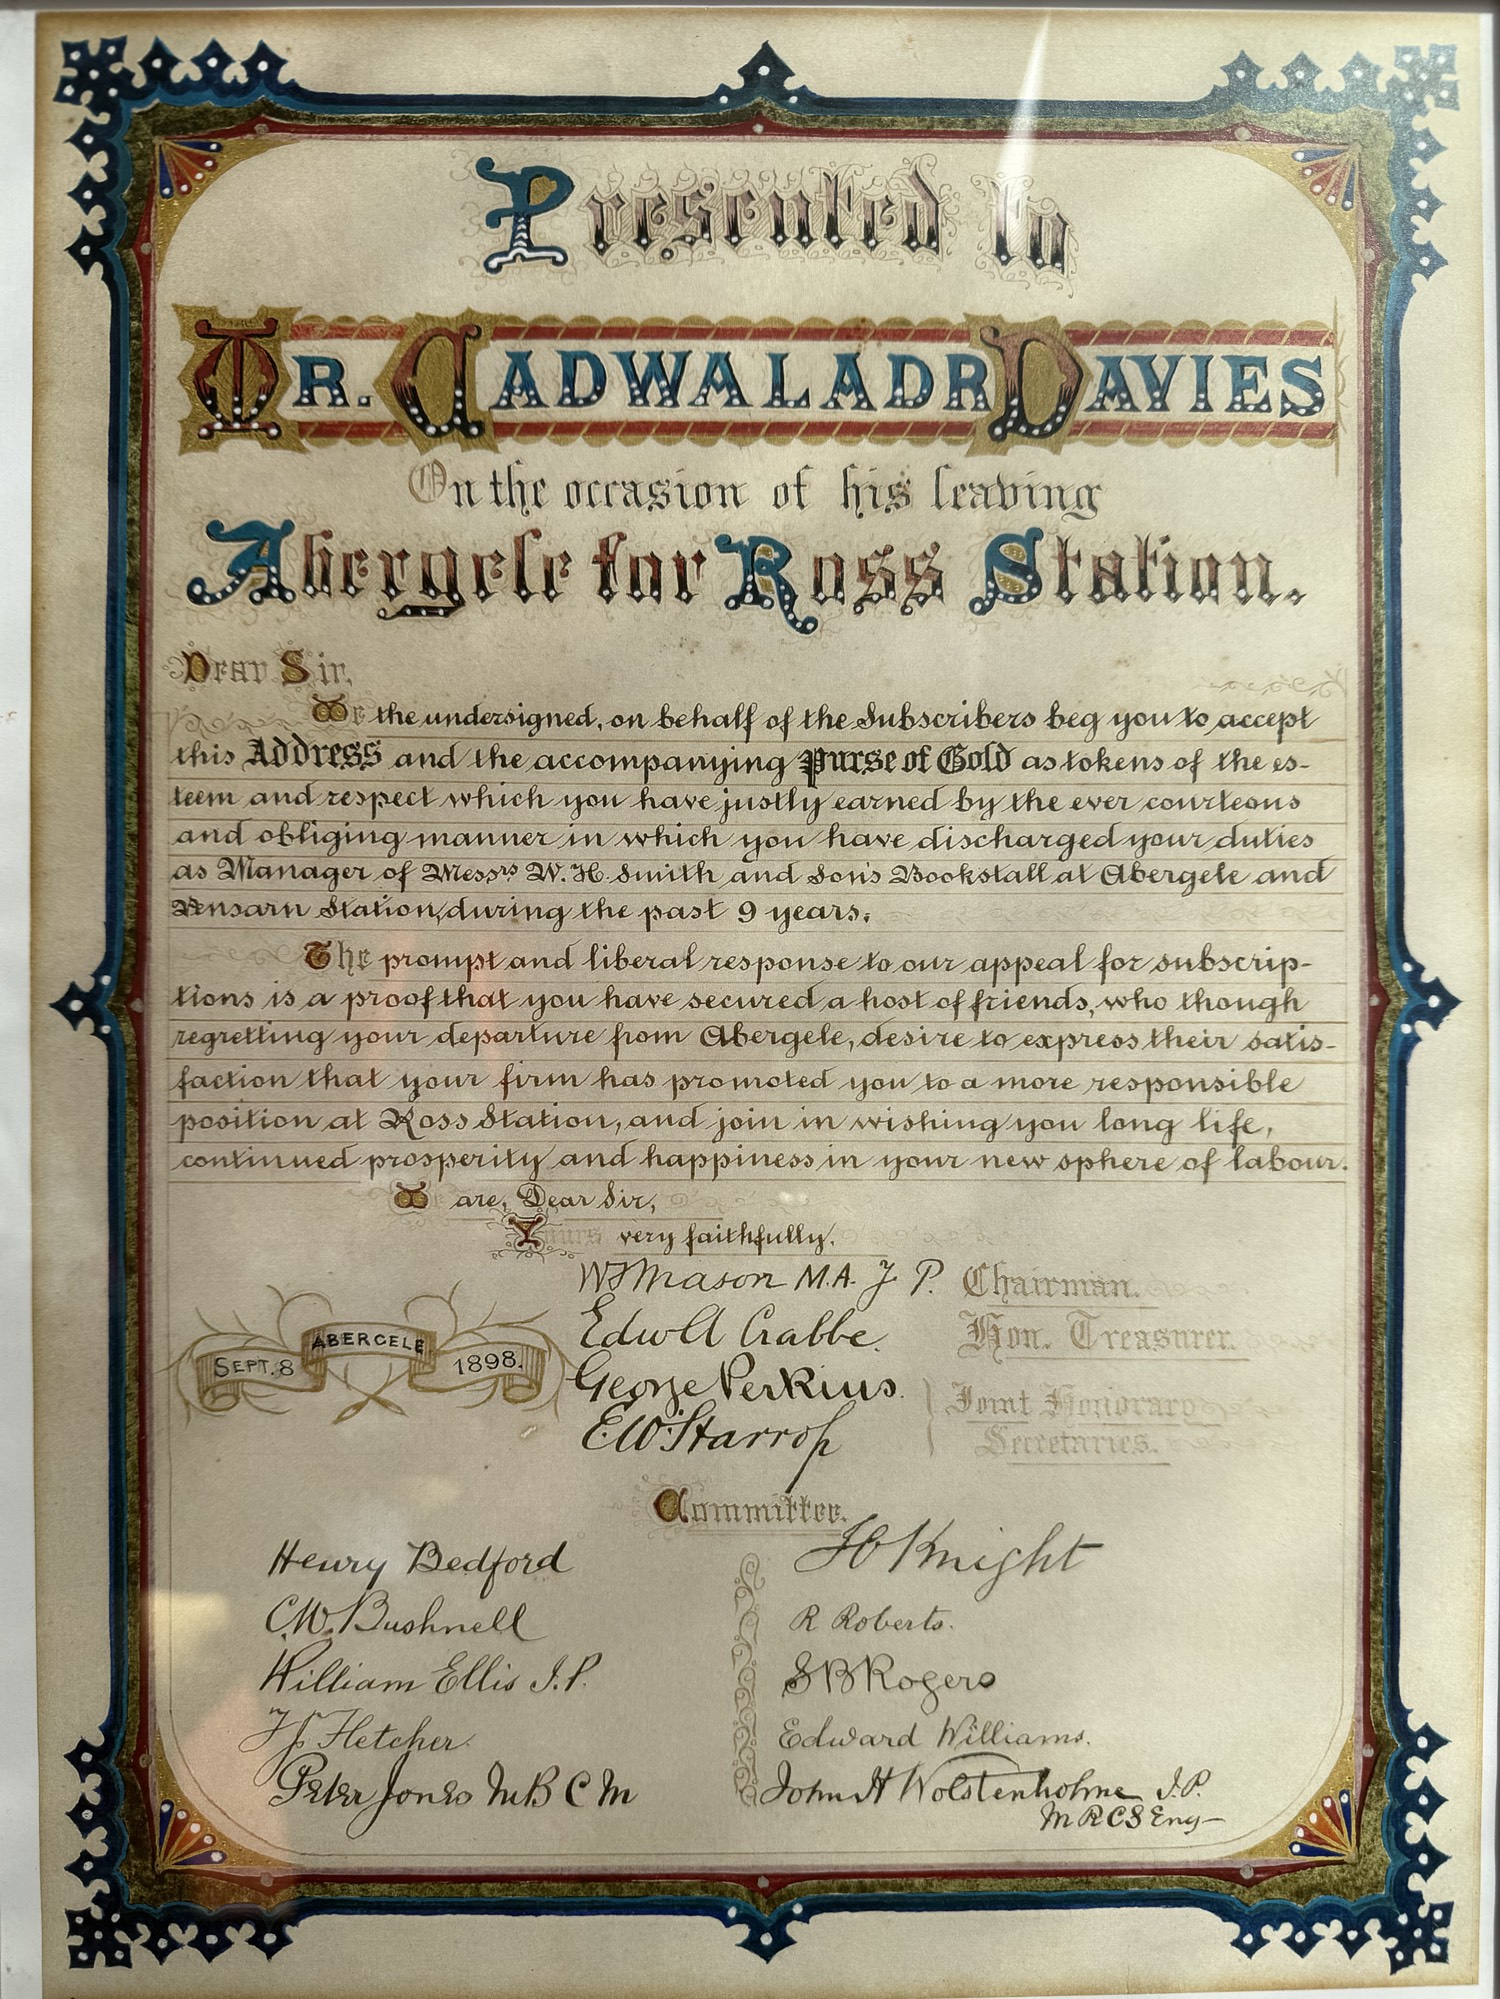 Presented to
Mr. Cadwaladr Davies
On the occasion of his leaving
Abergele for Ross Station.
Dear Sir,
We the undersigned, on behalf of the Subscribers beg you to accept
this Address and the accompanying Purse of Gold as tokens of the es-
teem and respect which you have justly earned by the ever courteous
and obliging manner in which you have discharged your duties
as Manager of Messrs W. H. Smith and Son's Bookstall at Abergele and
Pensarn Station, during the past 9 years.
The prompt and liberal response to our appeal for subscrip-
tions is a proof that you have secured a host of friends, who though
regretting your departure from Abergele, desire to express their satis-
faction that your firm has promoted you to a more responsible
position at Ross Station, and join in wishing you long life,
continued prosperity and happiness in your new sphere of labour.
We are, Dear Sir,
Yours very faithfully.
W Mason M.A. J. P. Chairman.
Edw A Crabbe. Hon. Treasurer.
George Perkins. Joint Honorary
E.W. Starrop Secretaries.
ABERGELE
SEPT. 8 1898.
Committee.
Henry Bedford
C.W. Bushnell
William Ellis J.P.
Fletcher.
Peter Jones M B C M
Knight
R Roberts.
S B Rogers
Edward Williams.
John H Wolstenholme J.P.
M R C S Eng